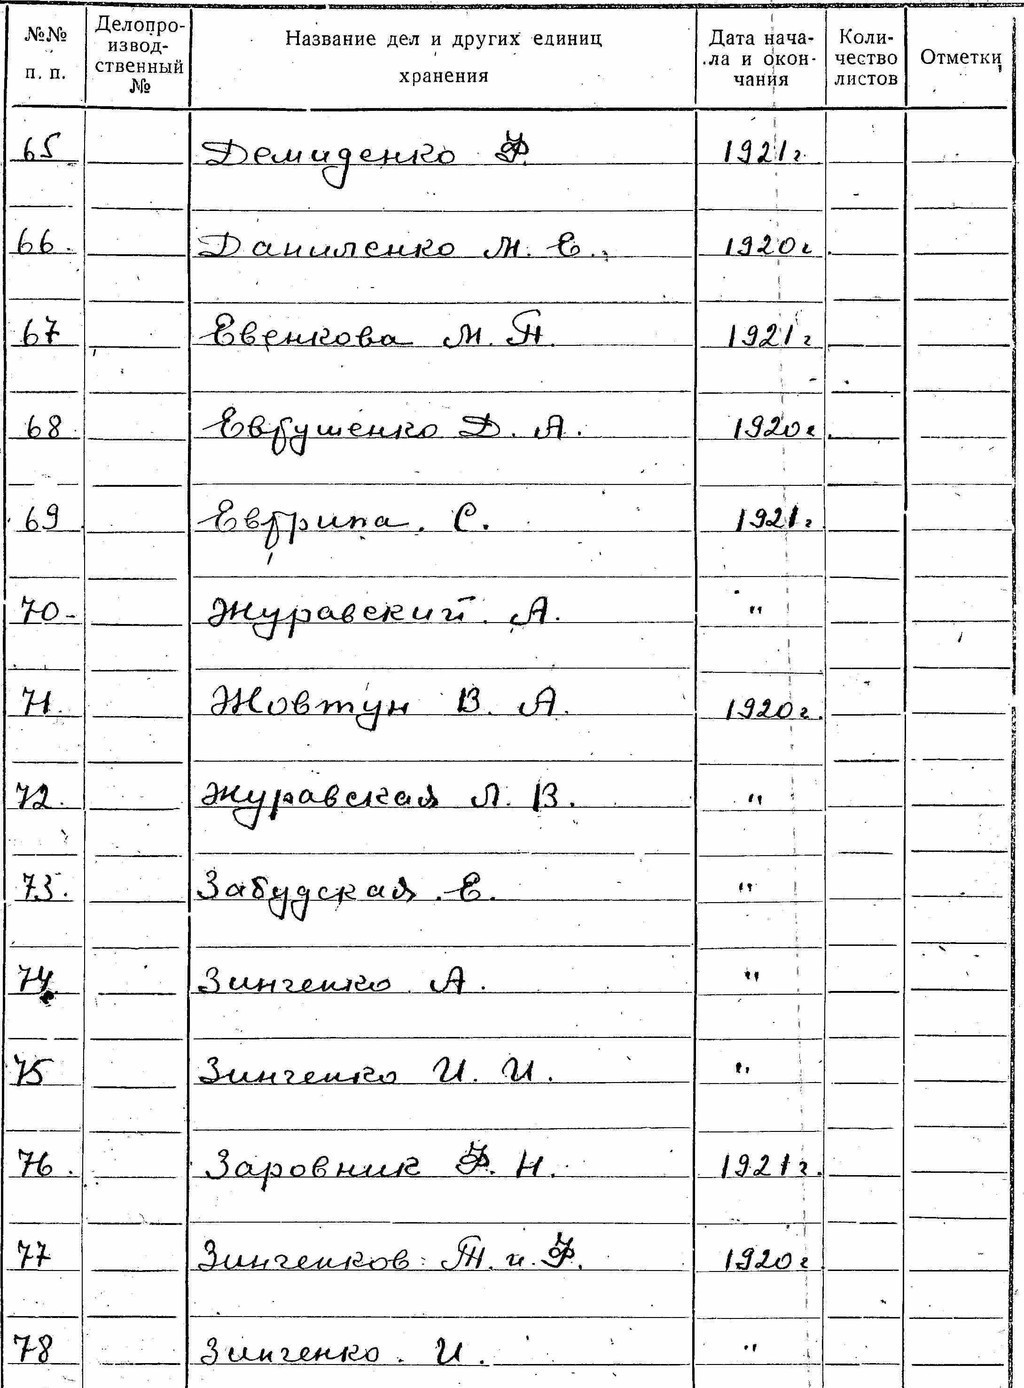 №№ п. п. Делопроизводственный № Название дел и других единиц хранения Дата начала и окончания Количество листов Отметки
65 Демиденко Ф 1921г
66. Даниленко М. Е. 1920г
67 Евенкова М. П. 1921г
68 Евтушенко Д. А. 1920г
69 С. 1921г
70 Журавский А. "
71. Жовтун В. А. 1920г.
72. Журавская Л. В. "
73. Забудская Е. "
74 Зинченко А. "
75 Зинченко И. И. "
76. Заровник Ф. Н. 1921г.
77 Зинченков Т. и Ф. 1920г
78 Зинченко И. "